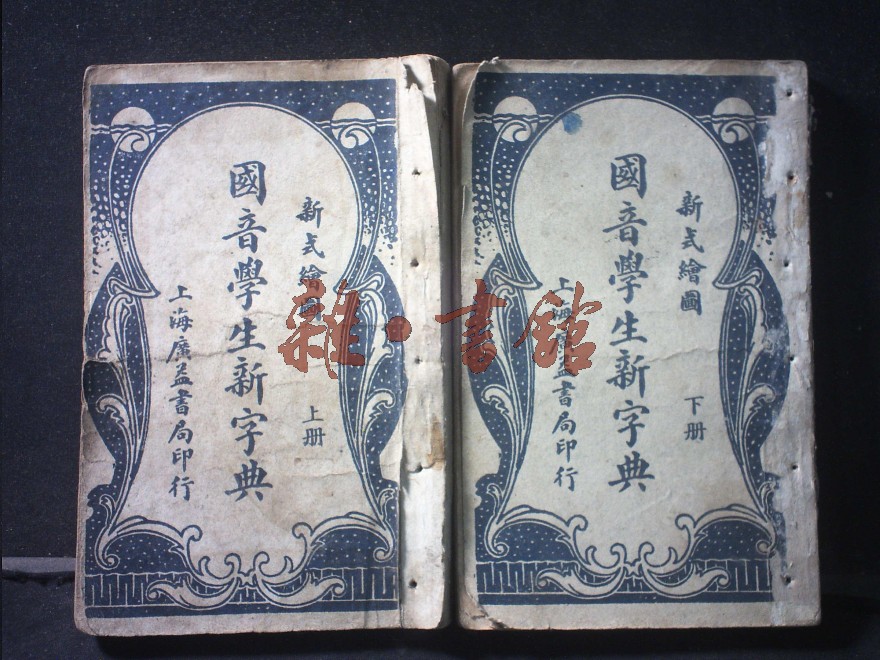 新式繪圖
上册
國音學生新字典
上海廣益書局印行
新式繪圖
下册
國音學生新字典
上海廣益書局印行
雜·書館